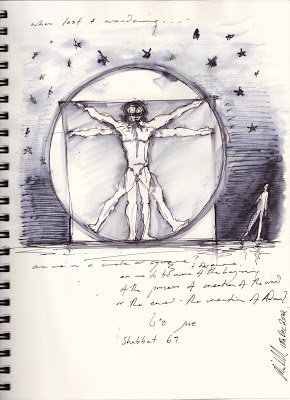 when lost & wandering....
are we in a circle or square? Do we
are we to be aware of the beginning
of the process of creation of the world
or the end - the creation of Adam?
Shabbat 69